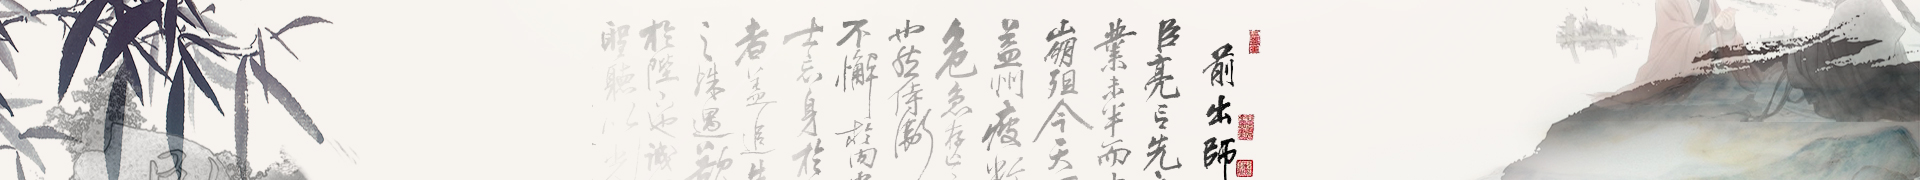 前出師
臣亮言先
業未半而
崩殂今天
益州疲弊
危急存亡
也然侍衛
不懈於内
士忘身於
者蓋追先
之殊遇欲
於陛下也誠
聖聽以光